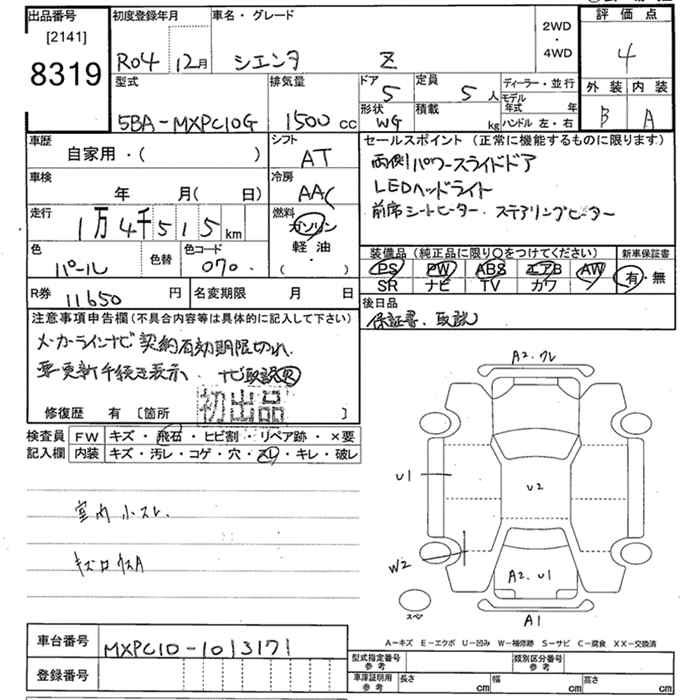 出品番号
[2141]
8319
初度登録年月
R04 12月
車名・グレード
シエンタ Z
2WD
・
4WD
評価点
4
外装 内装
B A
型式
5BA-MXPC10G
排気量
1500 cc
ドア
5
定員
5 人
ディーラー・並行
モデル年式 年
形状
WG
積載
kg
ハンドル 左・右
車歴
自家用・( )
シフト
AT
車検
年 月( 日)
冷房
AAC
走行
1万4千515 km
燃料
ガソリン
軽油
・
( )
色
パール
色替
色コード
070
R券 11650 円
名変期限 月 日
セールスポイント(正常に機能するものに限ります)
両側パワースライドドア
LEDヘッドライト
前席シートヒーター・ステアリングヒーター
装備品(純正品に限り○をつけてください)
新車保証書
PS PW ABS エアB AW
SR ナビ TV カワ
有・無
後日品
保証書、取説
注意事項申告欄(不具合内容等は具体的に記入して下さい)
メーカーラインナビ契約有効期限切れ
要更新手続き表示、ナビ取説
初出品
修復歴 有 [箇所 ]
検査員
記入欄
FW キズ・飛石・ヒビ割・リペア跡・×要
内装 キズ・汚レ・コゲ・穴・スレ・キレ・破レ
室内小スレ
A2.ワレ
U1
U2
W2
A2.U1
A1
スペア
A-キズ E-エクボ U-凹み W-補修跡 S-サビ C-腐食 XX-交換済
車台番号
MXPC10-1013171
登録番号
型式指定番号
参考
類別区分番号
参考
車庫証明用
参考
長さ cm 幅 cm 高さ cm